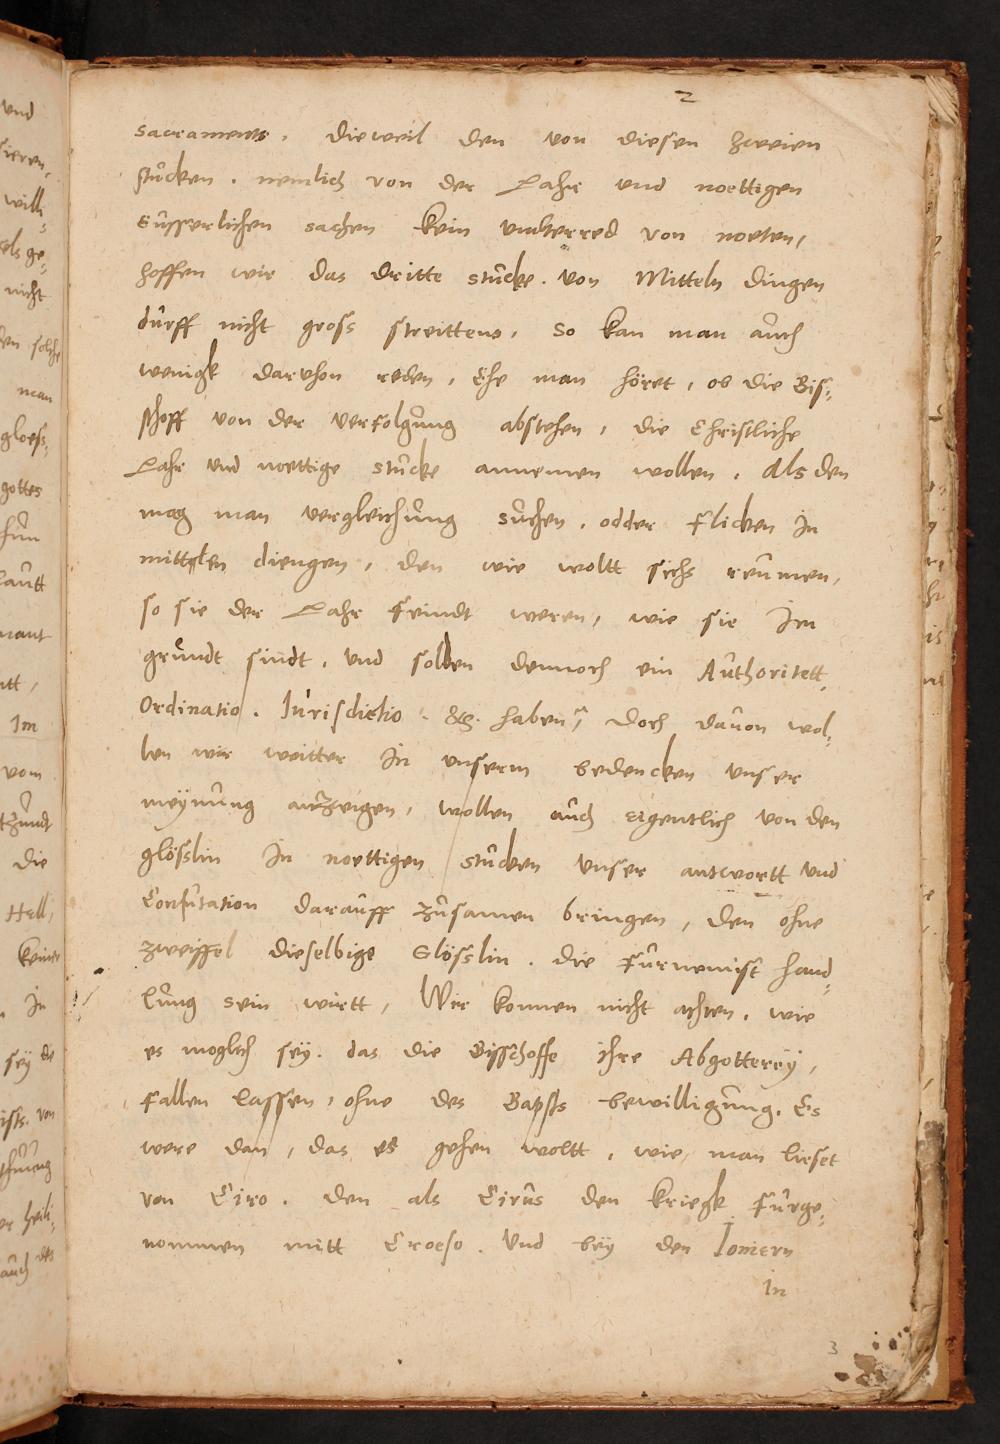 2
sacraments. Dieweil den von diesen zweien
stücken. nemlich von der Lahr und noettigen
Eusserlichen sachen kein unterred von noeten,
hoffen wir das dritte stücke. von Mitteln dingen
dürff nicht gross streittens, so kan man auch
wenigk darvhon reden, Ehe man höret, ob die Bis-
schoff von der verfolgung abstehen, die Christliche
Lahr und noettige stücke annemen wollen. Als den
mag man vergleichung suchen. odder flicken In
mittelen diengen, den wie woltt sichs reumen,
so sie der Lahr feindt weren, wie sie Im
grundt sindt, und sollen dennoch ein Authoritett,
Ordinatio. Iurisdictio. &c. haben, Doch davon wol-
len wir weitter In unserm bedencken unser
meÿnung anzeigen, wollen auch eigentlich von den
glösslin In noettigen stucken unser antwortt und
Confutation darauff zusamen bringen, den ohne
zweiffel dieselbige Glösslin. die fürnemist hand-
lung sein wirtt, Wir konnen nicht achten. wie
es moglich seÿ. das die Bisschoffe ihre Abgottereÿ,
fallen lassen, ohne des Bapsts bewilligung. Es
were dan, das es gehen woltt, wie man lieset
von Ciro. den als Cirus den kriegk fürge-
nommen mitt Croeso. und beÿ den Ioniern
In
3
und
willi-
ge-
nicht
solche
man
gottes
Im
vom
die
Hell,
In
seÿ die
von
auch des